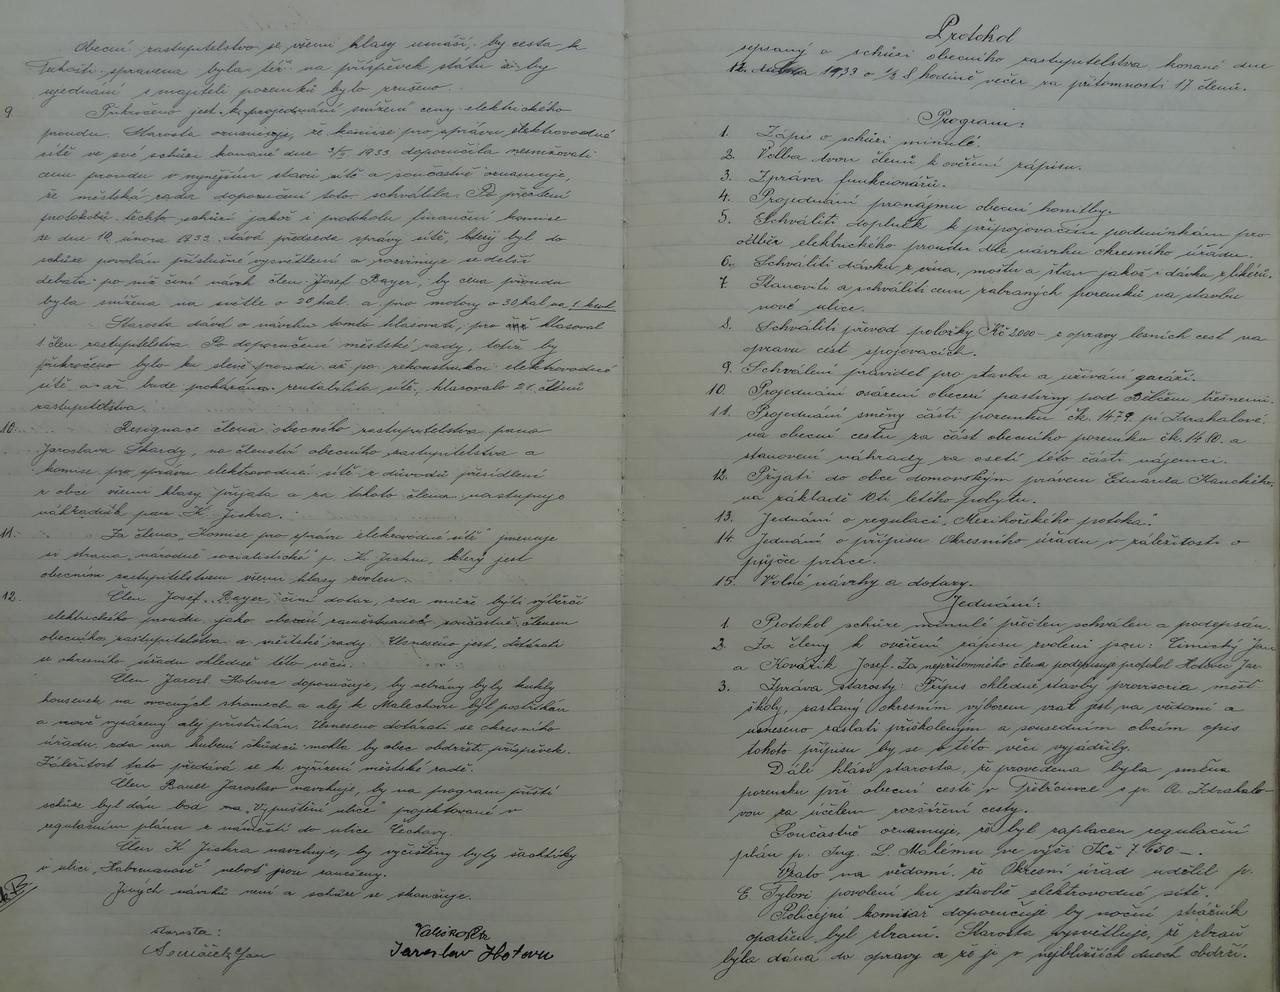 Obecní zastupitelstvo se všemi hlasy usnáší, by cesta k
Lhůti spravena byla též na příspěvek státu a by
ujednání s majiteli pozemků bylo zrušeno.
9 Přikročeno jest k projednání snížení ceny elektrického
proudu. Starosta oznamuje, že komise pro správu elektrovodné
sítě ve své schůzi konané dne 3/3 1933 doporučila nesnižovati
cenu proudu v nynějším stavu sítě a současně oznamuje,
že městská rada doporučení toto schválila. Po přečtení
protokolů těchto schůzí jakož i protokolu finanční komise
ze dne 10. února 1933 dává předseda správy sítě, který byl do
schůze povolán příslušné vysvětlení a rozvinuje se delší
debata po níž činí návrh člen Josef Bayer, by cena proudu
byla snížena na světle o 20 hal. a pro motory o 30 hal na 1 kwh.
Starosta dává o návrhu tomto hlasovati, pro něž hlasoval
1 člen zastupitelstva. Po doporučení městské rady, totiž by
přikročeno bylo ku slevě proudu až po rekonstrukci elektrovodné
sítě a až bude prokázána rentabilita sítě, hlasovalo 21 členů
zastupitelstva.
10. Resignace člena obecního zastupitelstva pana
Jaroslava Škardy, na členství obecního zastupitelstva a
komise pro správu elektrovodné sítě z důvodů přesídlení
z obce všemi hlasy přijata a za tohoto člena nastupuje
náhradník pan K. Jiskra.
11. Za člena „Komise pro správu elektrovodné sítě" jmenuje
si strana národně socialistická p. K. Jiskru, který jest
obecním zastupitelstvem všemi hlasy zvolen.
12. Člen Josef Bayer činí dotaz, zda může býti výběrčí
elektrického proudu jako obecní zaměstnanec současně členem
obecního zastupitelstva a městské rady. Usneseno jest, dotázati
se okresního úřadu ohledně této věci.
Člen Jarosl. Hotovec doporučuje, by sebrány byly kukly
housenek na ovocných stromech a alej k Malechovu byl postříkán
a nově vysázený alej přistřihán. Usneseno dotázati se okresního
úřadu, zda na hubení škůdců mohla by obec obdržeti příspěvek.
Záležitost tato předává se k vyřízení městské radě.
Člen Bauer Jaroslav navrhuje, by na program příští
schůze byl dán bod „Vypuštění ulice" projektované v
regulačním plánu z náměstí do ulice Čechovy.
Člen K Jiskra navrhuje, by vyčištěny byly šachtíky
v ulici „Habrmanově" neboť jsou zaneseny.
Jiných návrhů není a schůze se skončuje.
starosta:
Jaroslav Hotovec
Protokol
sepsaný o schůzi obecního zastupitelstva, konané dne
12. dubna 1933 o ½ 8 hodině večer za přítomnosti 17 členů.
Program:
1. Zápis o schůzi minulé.
2. Volba dvou členů k ověření zápisu.
3. Zpráva funkcionářů.
4. Projednání pronájmu obecní honitby.
5. Schváliti doplněk k připojovacím podmínkám pro
odběr elektrického proudu dle návrhu okresního úřadu.
6. Schváliti dávku z vína, moštu a šťav jakož i dávku z likérů.
7. Stanoviti a schváliti cenu zabraných pozemků na stavbu
nové ulice.
8. Schváliti převod položky Kč 2000– z opravy lesních cest na
opravu cest spojovacích.
9. Schválení pravidel pro stavbu a užívání garáží.
10. Projednání osázení obecní pastviny pod Bílčem třešněmi.
11. Projednání směny části pozemku čk. 1479 pí Zdrahalové
na obecní cestu za část obecního pozemku čk. 1480 a
stanovení náhrady za osetí této části nájemci.
12. Přijati do obce domovským právem Eduarda Kanckého,
na základě 10ti letého pobytu.
13. Jednání o regulaci „Mezihořského potoka".
14. Jednání o přípisu Okresního úřadu v záležitosti o
půjčce práce.
15. Volné návrhy a dotazy.
Jednání:
1. Protokol schůze minulé přečten schválen a podepsán.
2. Za členy k ověření zápisu zvoleni jsou: Jan
a Kovářík Josef. Za nepřítomného člena podepisuje protokol Hotovec Jar.
3. Zpráva starosty: Přípis ohledně stavby provisoria měšť.
školy, zaslaný okresním výborem vzat jest na vědomí a
usneseno zaslati přiškoleným a sousedním obcím opis
tohoto přípisu by se o této věci vyjádřily.
Dále hlásí starosta, že provedena byla směna
pozemku při obecní cestě v Třeticevce s p. A. Zdrahalo-
vou za účelem rozšíření cesty.
Současně oznamuje, že byl zaplacen regulační
plán p. Ing. L. Malému ve výši Kč 7.650 –.
Vzato na vědomí, že Okresní úřad udělil p.
E. Tylovi povolení ku stavbě elektrovodné sítě.
Policejní komisař doporučuje by noční strážník
opatřen byl zbraní. Starosta vysvětluje, že zbraň
byla dána do opravy a že ji v nejbližších dnech obdrží.